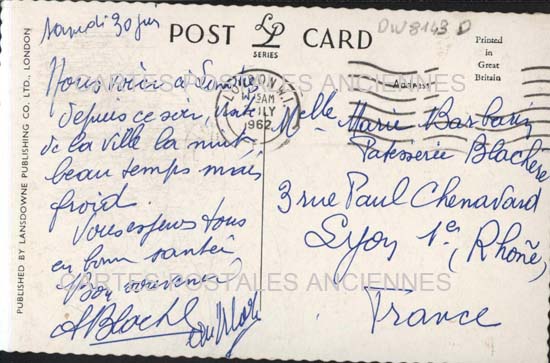 Samedi 30 juin
POST CARD
LP
SERIES
DW8143 D
Printed
in
Great
Britain
PUBLISHED BY LANSDOWNE PUBLISHING CO., LTD., LONDON
CARTES POSTALES ANCIENNES
LONDON W.1
9 AM
JLY
1962
Address
Nous voici à Londres
depuis ce soir, visite
de la ville la nuit,
beau temps mais
froid.
Vous espérons tous
en bonne santé.
Bon souvenir,
ABlachè
Melle Marie Barbarin
Patisserie Blachère
3 rue Paul Chenavard
Lyon 1er (Rhône)
France
CARTES POSTALES ANCIENNES